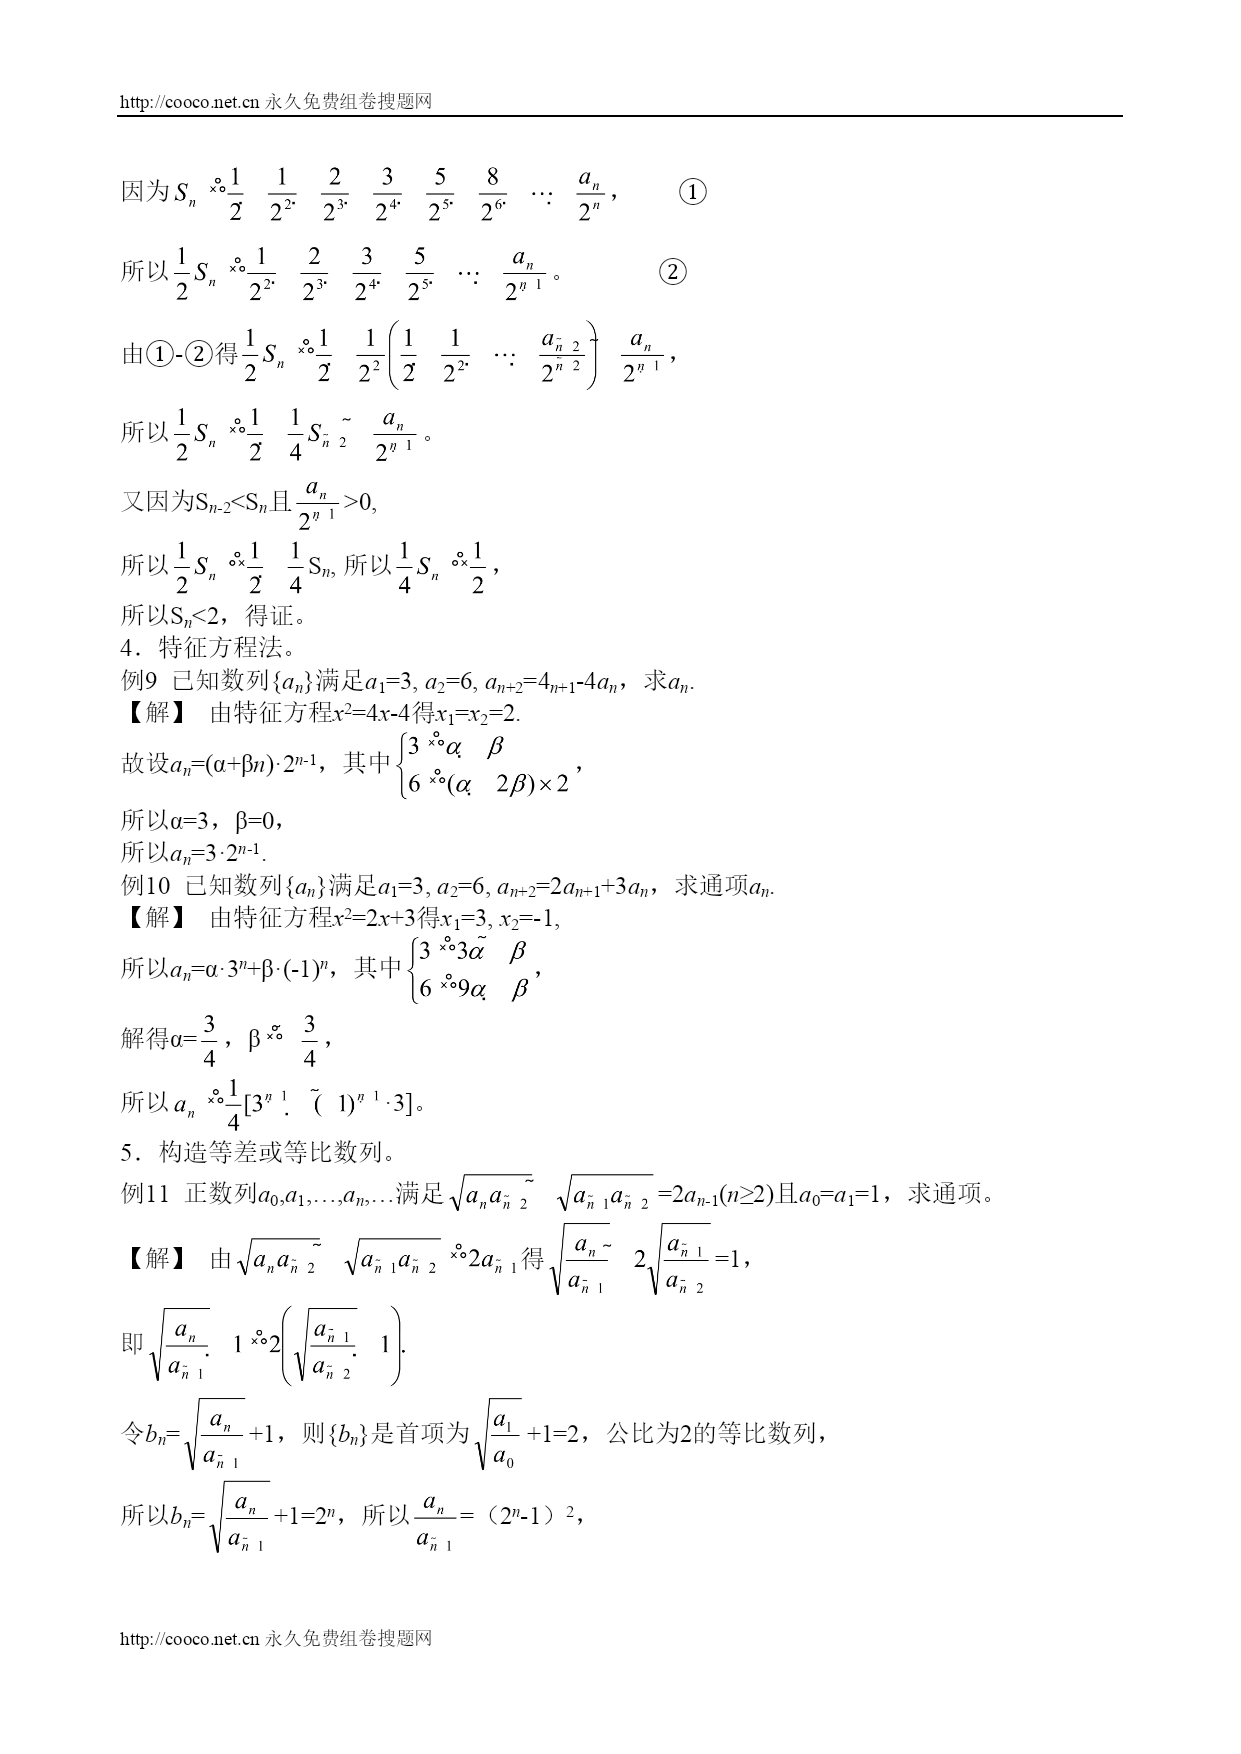 http://cooco.net.cn 永久免费组卷搜题网
因为 Sn ×°° 1/2. 1/2^2. 2/2^3. 3/2^4. 5/2^5. 8/2^6. ⋯. an/2^n， ①
所以 1/2 Sn ×°° 1/2^2. 2/2^3. 3/2^4. 5/2^5. ⋯. an/2^n. 1 。 ②
由①-②得 1/2 Sn ×°° 1/2. 1/2^2 (1/2. 1/2^2. ⋯. an~ 2/2^n~ 2) ~ an/2^n. 1，
所以 1/2 Sn ×°° 1/2. 1/4 Sn~ 2 ~ an/2^n. 1 。
又因为Sn-2<Sn且 an/2^n. 1 >0,
所以 1/2 Sn °°× 1/2. 1/4 Sn, 所以 1/4 Sn °°× 1/2，
所以Sn<2，得证。
4．特征方程法。
例9 已知数列{an}满足a1=3, a2=6, an+2=4n+1-4an，求an.
【解】 由特征方程x²=4x-4得x1=x2=2.
故设an=(α+βn)·2^n-1，其中 {3 ×°° α. β
6 ×°° (α. 2β)×2，
所以α=3，β=0，
所以an=3·2^n-1.
例10 已知数列{an}满足a1=3, a2=6, an+2=2an+1+3an，求通项an.
【解】 由特征方程x²=2x+3得x1=3, x2=-1,
所以an=α·3^n+β·(-1)^n，其中 {3 ×°° 3α ~ β
6 ×°° 9α. β，
解得α= 3/4，β ×°° ~ 3/4，
所以 an ×°° 1/4 [3^n. 1 . (~ 1)^n. 1 ·3]。
5．构造等差或等比数列。
例11 正数列a0,a1,…,an,…满足 √(an an~ 2) ~ √(an~ 1 an~ 2) =2an-1(n≥2)且a0=a1=1，求通项。
【解】 由 √(an an~ 2) ~ √(an~ 1 an~ 2) ×°° 2an~ 1 得 √(an/an~ 1) ~ 2√(an~ 1/an~ 2) =1，
即 √(an/an~ 1) . 1 ×°° 2(√(an~ 1/an~ 2) . 1).
令bn= √(an/an~ 1) +1，则{bn}是首项为 √(a1/a0) +1=2，公比为2的等比数列，
所以bn= √(an/an~ 1) +1=2^n，所以 an/an~ 1 =（2^n-1）²，
http://cooco.net.cn 永久免费组卷搜题网